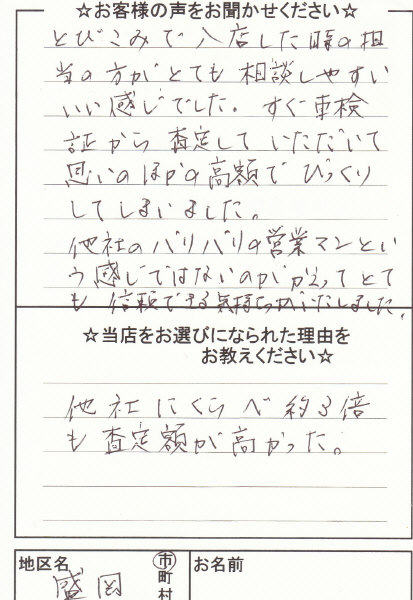 ☆お客様の声をお聞かせください☆
とびこみで入店した時の担
当の方がとても相談しやすい
いい感じでした。すぐ車検
証から査定していただいて
思いのほかの高額でびっくり
してしまいました。
他社のバリバリの営業マンとい
う感じではないのがかえってとて
も信頼できる気持ちがいたしました。
☆当店をお選びになられた理由を
お教えください☆
他社にくらべ約3倍
も査定額が高かった。
地区名
盛岡
市
町
村
お名前